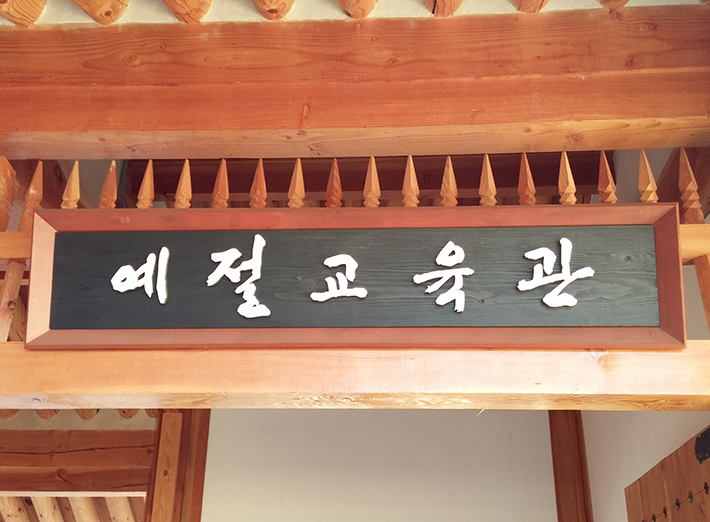 예절교육관